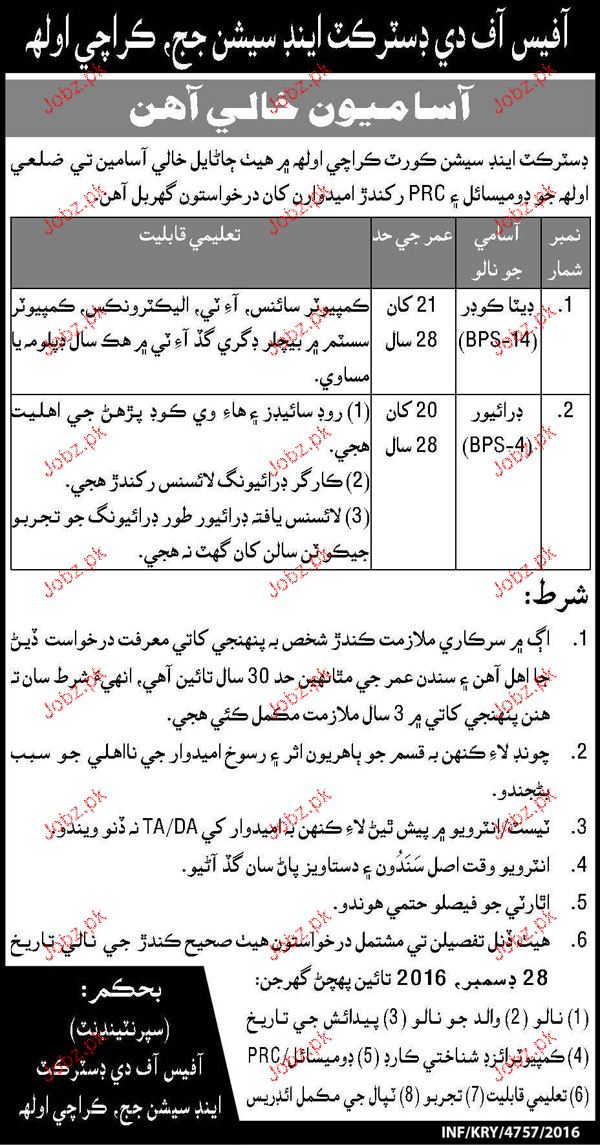 آفيس آف دي ڊسٽرڪٽ اينڊ سيشن جج، ڪراچي اولهه
آساميون خالي آهن
ڊسٽرڪٽ اينڊ سيشن ڪورٽ ڪراچي اولهه ۾ هيٺ ڄاڻايل خالي آسامين تي ضلعي
اولهه جو ڊوميسائل ۽ PRC رکندڙ اميدوارن کان درخواستون گهربل آهن.
نمبر شمار
آسامي جو نالو
عمر جي حد
تعليمي قابليت
1.
ڊيٽا ڪوڊر
(BPS-14)
21 کان
28 سال
ڪمپيوٽر سائنس، آءِ ٽي، اليڪٽرونڪس، ڪمپيوٽر
سسٽم ۾ بيچلر ڊگري گڏ آءِ ٽي ۾ هڪ سال ڊپلومه يا
مساوي.
2.
ڊرائيور
(BPS-4)
20 کان
28 سال
(1) روڊ سائيڊز ۽ هاءِ وي ڪوڊ پڙهڻ جي اهليت
هجي.
(2) ڪارگر ڊرائيونگ لائسنس رکندڙ هجي.
(3) لائسنس يافته ڊرائيور طور ڊرائيونگ جو تجربو
جيڪو ٽن سالن کان گهٽ نه هجي.
شرط:
1. اڳ ۾ سرڪاري ملازمت ڪندڙ شخص به پنهنجي کاتي معرفت درخواست ڏيڻ
جا اهل آهن ۽ سندن عمر جي مٿانهين حد 30 سال تائين آهي، انهيءَ شرط سان ته
هنن پنهنجي کاتي ۾ 3 سال ملازمت مڪمل ڪئي هجي.
2. چونڊ لاءِ ڪنهن به قسم جو ٻاهريون اثر ۽ رسوخ اميدوار جي نااهلي جو سبب
بڻجندو.
3. ٽيسٽ/انٽرويو ۾ پيش ٿيڻ لاءِ ڪنهن به اميدوار کي TA/DA نه ڏنو ويندو.
4. انٽرويو وقت اصل سَنَدُون ۽ دستاويز پاڻ سان گڏ آڻيو.
5. اٿارٽي جو فيصلو حتمي هوندو.
6. هيٺ ڏنل تفصيلن تي مشتمل درخواستون هيٺ صحيح ڪندڙ جي نالي تاريخ
28 ڊسمبر، 2016 تائين پهچڻ گهرجن:
(1) نالو (2) والد جو نالو (3) پيدائش جي تاريخ
(4) ڪمپيوٽرائزڊ شناختي ڪارڊ (5) ڊوميسائل/PRC
(6) تعليمي قابليت (7) تجربو (8) ٽپال جي مڪمل ائڊريس
بحڪم:
(سپرنٽينڊنٽ)
آفيس آف دي ڊسٽرڪٽ
اينڊ سيشن جج، ڪراچي اولهه
INF/KRY/4757/2016
Jobz.pk